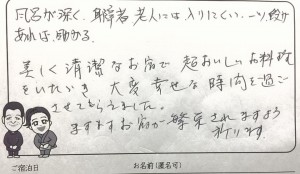 風呂が深く、障害者 老人には入りにくい、一ツ、段が
あれば、助かる。
美しく清潔なお宿で 超おいしいお料理
をいただき 大変 幸せな時間を過ご
させてもらえました。
ますますお宿が繁栄されますよう
祈ります
ご宿泊日
お名前(匿名可)